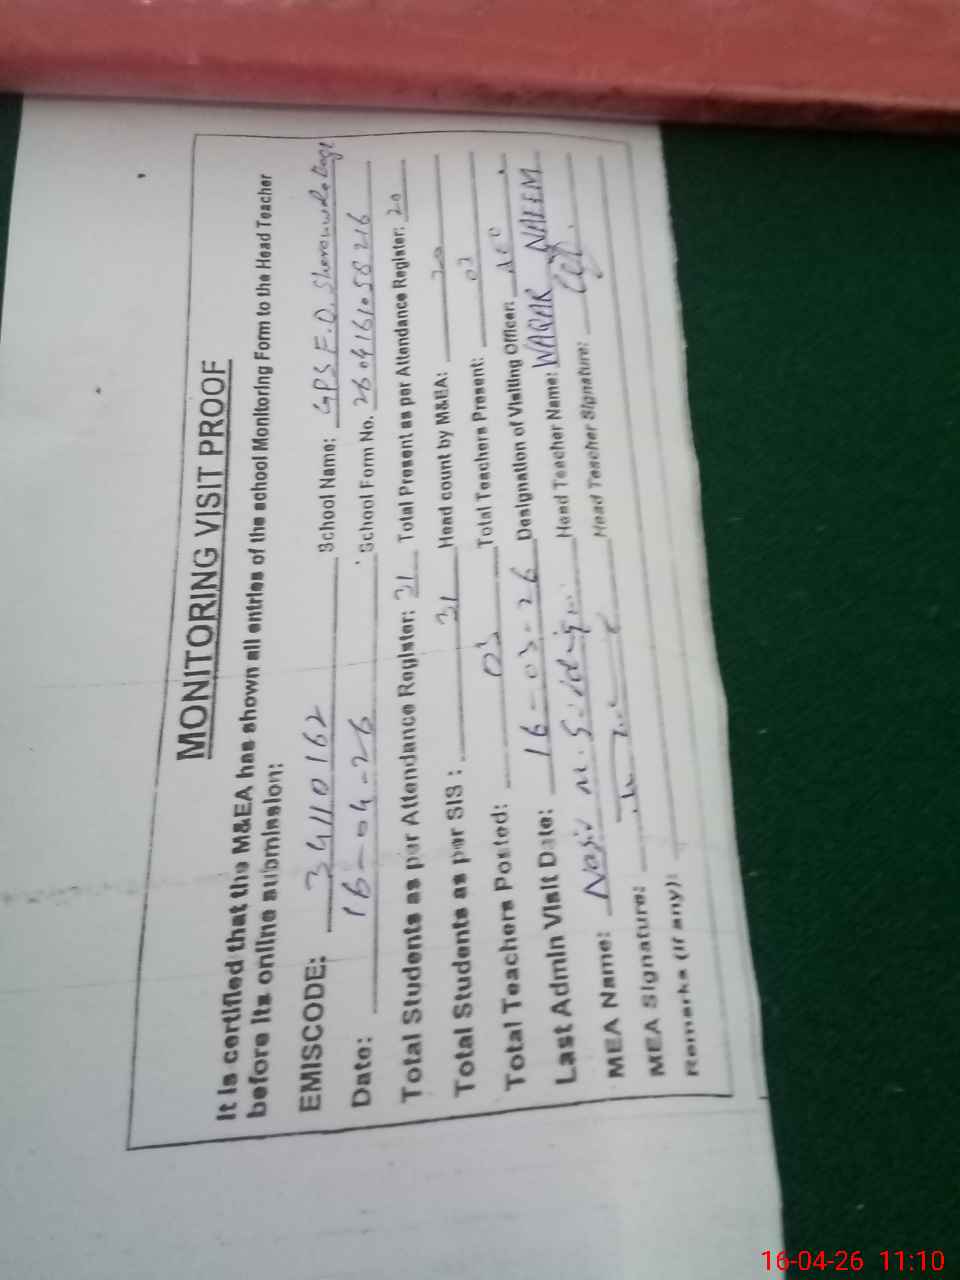 MONITORING VISIT PROOF
It is certified that the M&EA has shown all entries of the school Monitoring Form to the Head Teacher
before its online submission:
EMISCODE: 34110162 School Name: GPS F.D. Sheronwala
Date: 16-04-26 School Form No.
Total Students as per Attendance Register: 31 Total Present as per Attendance Register: 20
Total Students as per SIS: 31 Head count by M&EA: 20
Total Teachers Posted: 03 Total Teachers Present: 03
Last Admin Visit Date: 16-03-26 Designation of Visiting Officer: AEO
MEA Name: Nasir M. Head Teacher Name: WAQAR NAEEM
MEA Signature: Head Teacher Signature:
Remarks (if any):
16-04-26 11:10